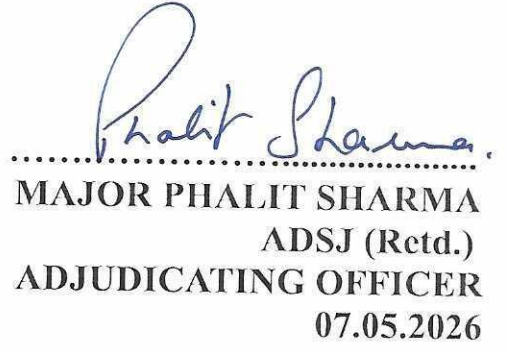 Phalit Sharma.
MAJOR PHALIT SHARMA
ADSJ (Retd.)
ADJUDICATING OFFICER
07.05.2026